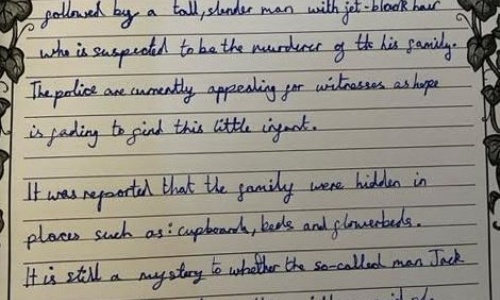 followed by a tall, slender man with jet-black hair
who is suspected to be the murderer of th his family.
The police are currently appealing for witnesses as hope
is fading to find this little infant.
It was reported that the family were hidden in
places such as: cupboards, beds and flowerbeds.
It is still a mystery to whether the so-called man Jack